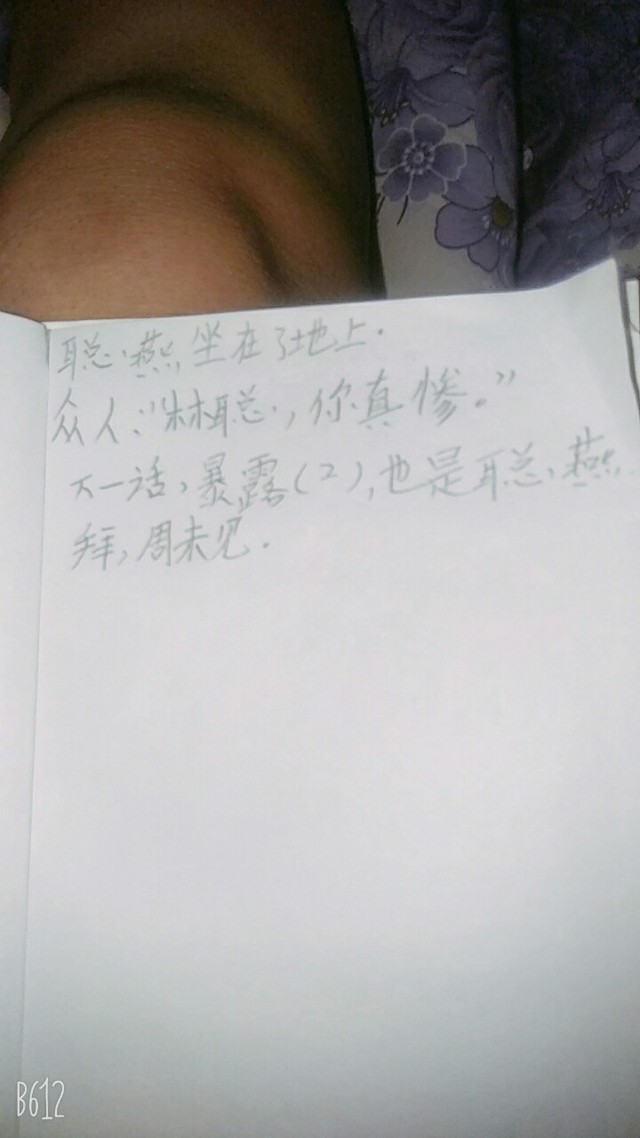 聪、燕坐在了地上.
众人:“林聪,你真惨。”
下一话,暴露(2),也是聪、燕
拜,周末见.
B612